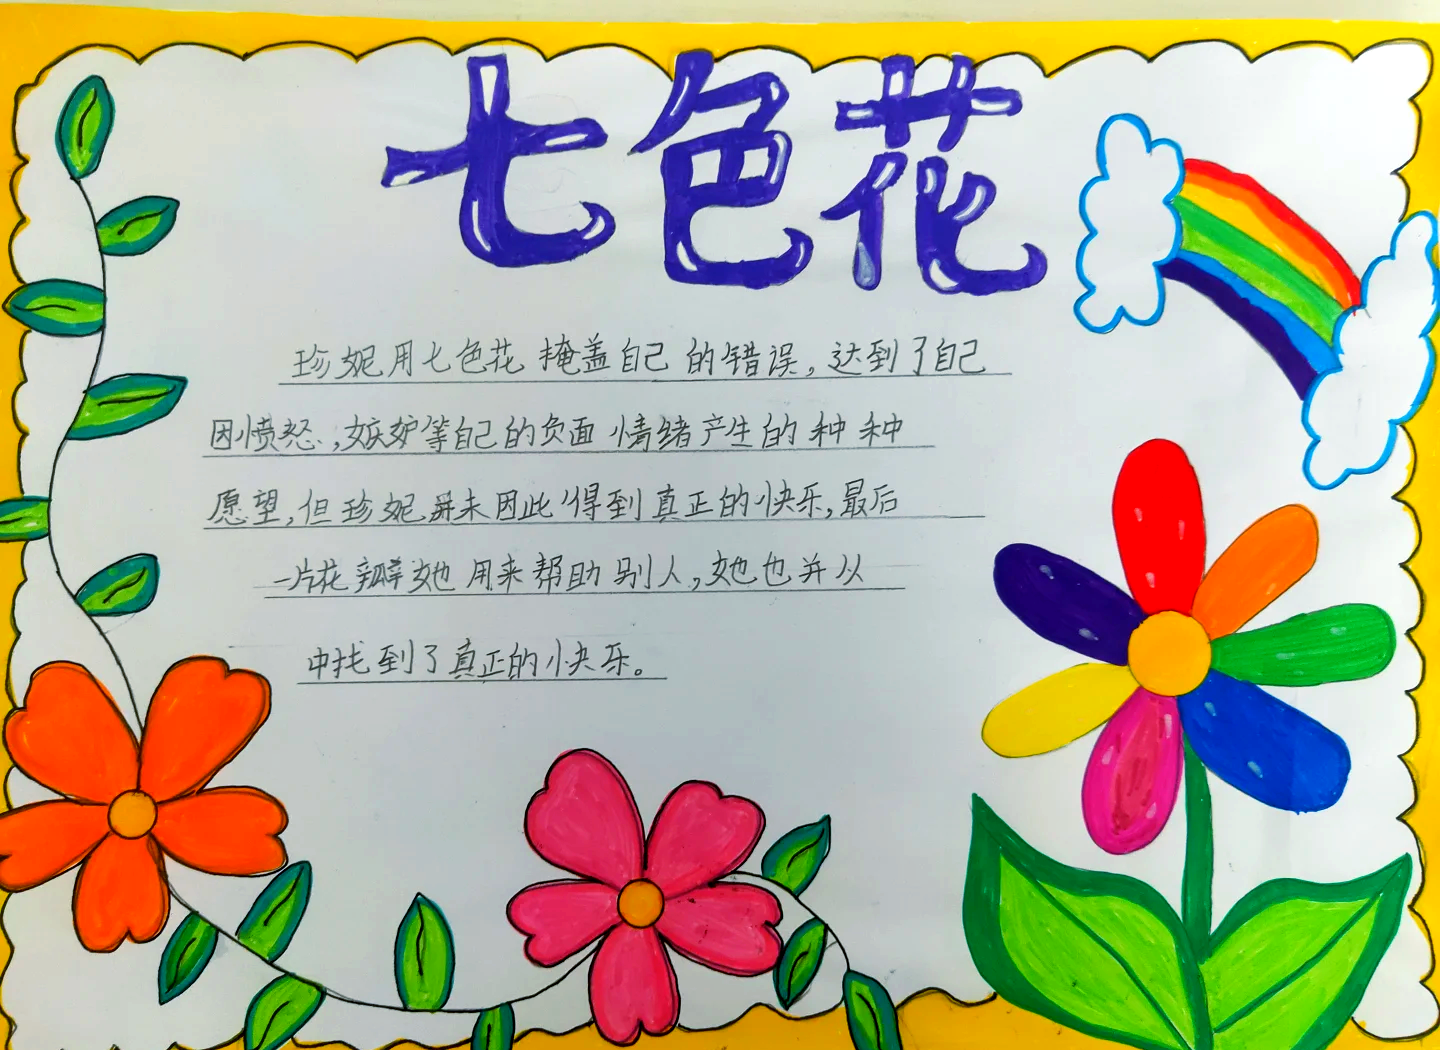 七色花
珍妮用七色花掩盖自己的错误,达到了自己
因愤怒,嫉妒等自己的负面情绪产生的种种
愿望,但珍妮并未因此得到真正的快乐,最后
一片花瓣她用来帮助别人,她也并从
中找到了真正的快乐。